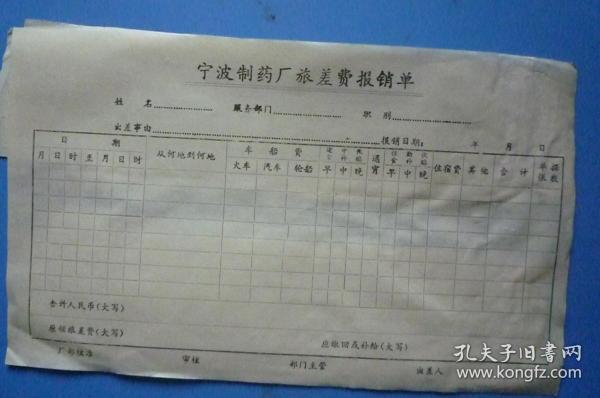 宁波制药厂旅差费报销单
姓 名 服务部门 职别
出差事由 报销日期: 年 月 日
日 期 从何地到何地 车 船 费 通宵 住宿费 其他 合计 单据张数
月 日 时 至 月 日 时 火车 汽车 轮船 早 中 晚 早 中 晚
合计人民币(大写)
原领旅差费(大写) 应缴回或补给(大写)
厂部核准 审核 部门主管 出差人
孔夫子旧书网
www.kongfz.com